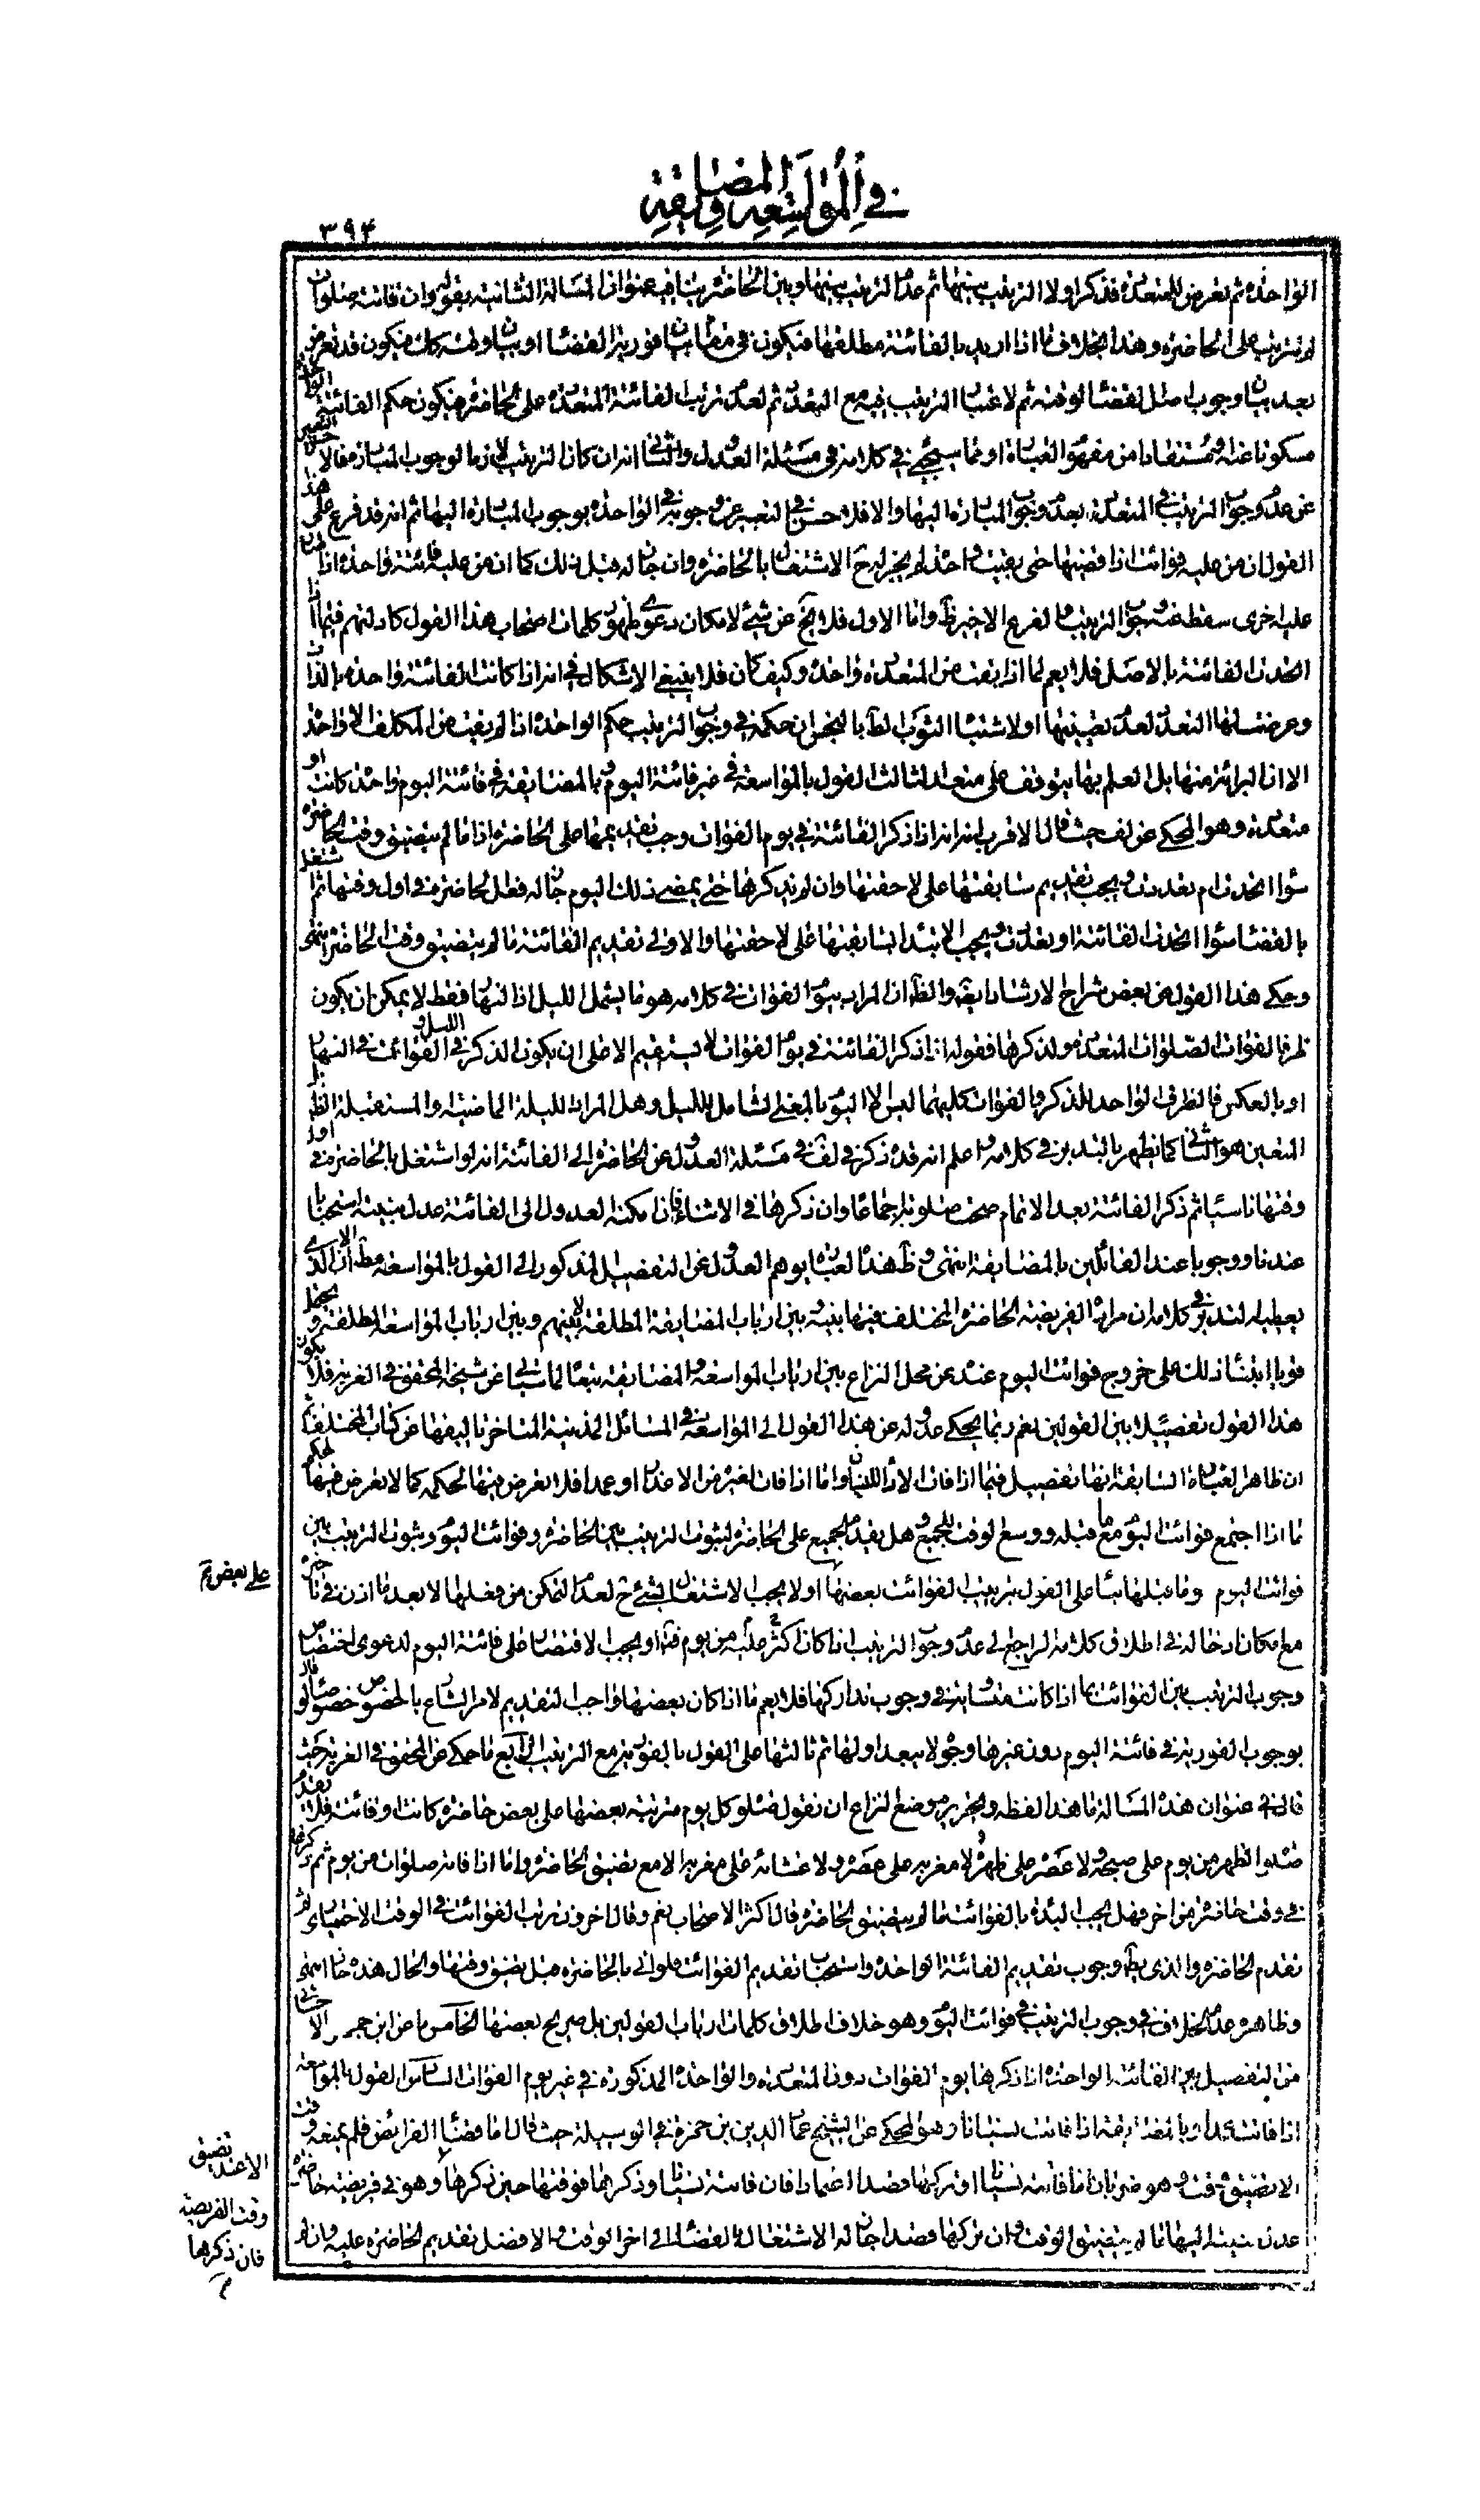 في المواسعة والمضايقة
٣٩٤
الواحدة ثم تعرض للمتعددة فذكر اولا الترتيب بينها ثم عدم الترتيب بينها وبين الحاضرة بناء فيه عنوان المسألة الثانية بقوله وان فاتته صلوات
لم تترتب على الحاضرة وهذا بخلاف ما اذا اريد بالفائتة مطلقها فيكون في مقام بيان فورية القضاء او بيان اوليته كان فيكون قد تعرض
بعد بيان وجوب اصل القضاء لوقته ثم لاعتبار الترتيب فيه مع التعدد ثم لعدم ترتب الفائتة المتعددة على الحاضرة فيكون حكم الفائتة الواحدة
مسكوتا عنه او مستفادا من مفهوم العبارة او مما سيجيء في كلامه في مسئلة العدول والثاني انه ان كان الترتيب لازما لوجوب المبادرة فلا حسن التعبير
عن عدم وجوب الترتيب في المتعددة بعدم وجوب المبادرة اليها والا فلا حسن في التعبير عن وجوبه في الواحدة بوجوب المبادرة اليها ثم انه قد فرع على هذا
القول ان من عليه فوائت اذا قضيها حتى بقيت واحدة لم يجز له ح الاشتغال بالحاضرة وان جاز له قبل ذلك كما ان من عليه فائتة واحدة اذا
عليه اخرى سقط عنه وجوب الترتيب والفرع الاخير ظ واما الاول فلا يخ عن شيء لامكان دعوى ظهور كلمات اصحاب هذا القول كادلتهم فيما اذا
اتحدت الفائتة بالاصل فلا يعم لما اذا بقيت من المتعددة واحدة وكيف كان فلا ينبغي الاشكال في انه اذا كانت الفائتة واحدة بالذات
وعرضت لها التعدد لعدم تعيينها او لاشتباه الثوب الطاهر بالنجس ان حكمه في وجوب الترتيب حكم الواحدة اذا لم يفت من المكلف الا واحدة
الا ان البرائة منها بل العلم بها يتوقف على متعدد الثالث القول بالمواسعة في غير فائتة اليوم والمضايقة في فائتة اليوم واحدة كانت او
متعددة وهو المحكي عن لف حيث قال الاقرب انه اذا ذكر الفائتة في يوم الفوات وجب تقديمها على الحاضرة اذا ما لم يتضيق وقت الحاضرة
سواء اتحدت ام تعددت ويجب تقديم سابقتها على لاحقتها وان لم يذكرها حتى يمضي ذلك اليوم جاز له فعل الحاضرة في اول وقتها ثم اشتغل
بالقضاء سواء اتحدت الفائتة او تعددت ويجب الابتداء بسابقتها على لاحقتها والاولى تقديم الفائتة ما لم يتضيق وقت الحاضرة انتهى
وحكي هذا القول عن بعض شراح الارشاد ايضا والظ ان المراد بيوم الفوات في كلامه هو ما يشمل الليل اذ النهار فقط لا يمكن ان يكون
ظرفا لفوات الصلوات المتعددة ولذكرها فقوله ان ذكر الفائتة في يوم الفوات لا يستقيم الا على ان يكون الذكر في الليل والفوائت في النهار
او بالعكس فالظرف الواحد للذكر والفوات كليهما ليس الا اليوم بالمعنى الشامل لليل وهل المراد الليلة الماضية والمستقبلة الظ بل
المتعين هو الثاني كما يظهر بالتدبر في كلامه واعلم انه قده ذكر في لف في مسئلة العدول عن الحاضرة الى الفائتة انه لو اشتغل بالحاضرة في اول
وقتها ناسيا ثم ذكر الفائتة بعد الاتمام صحت صلوته اجماعا وان ذكرها في الاثناء فان امكنه العدول الى الفائتة عدل بنيته استحبابا
عندنا ووجوبا عند القائلين بالمضايقة انتهى وظ هذه العبارة يوهم العدول عن التفصيل المذكور الى القول بالمواسعة مط الا ان الذي
يعطيه التدبر في كلامه ان مراده الفريضة الحاضرة المختلف فيها بينه وبين ارباب المضايقة المطلقة لا بينهم وبين ارباب المواسعة المطلقة ويحتمل
قويا ابتناء ذلك على خروج فوائت اليوم عنده عن محل النزاع بين ارباب المواسعة والمضايقة تبعا لما سيأتي عن شيخه المحقق في العزية فلا يكون
هذا القول تفصيلا بين القولين نعم ربما يحكى عدوله عن هذا القول الى المواسعة في المسائل المدنية المتاخر تاليفها عن كتاب المختلف ثم
ان ظاهر العبارة السابقة انها تفصيل فيما اذا فات الاداء للنسيان واما اذا فات لغيره من الاعذار او عمدا فلا تعرض فيها لحكمه كما لا تعرض فيها لحكم
ما اذا اجتمع فوائت اليوم مع ما قبله ووسع الوقت للجميع وهل يقدم الجميع على الحاضرة لثبوت الترتيب بين الحاضرة وفوائت اليوم وثبوت الترتيب بين
فوائت اليوم وما قبلها بناء على القول بترتيب الفوائت بعضها على بعض او لا يجب الاشتغال بشيء ح لعدم التمكن من فعلها الا بعد ما اذن في تأخيره
مع امكان ادخاله في اطلاق كلامه الراجع الى عدم وجوب الترتيب اذا كان اكثر ما عليه من يوم فته او يجب الاقتصار على فائتة اليوم لدعوى اختصاص
وجوب الترتيب بين الفوائت بما اذا كانت متساوية في وجوب تداركها فلا يعم ما اذا كان بعضها واجب التقديم لامر الشارع بالخصوص خصوصا لو قال
بوجوب الفورية في فائتة اليوم دون غيرها وجوه لا يبعد اولها ثم ثالثها على القول بالفورية مع الترتيب الرابع ما حكي عن المحقق في العزية حيث
قال في عنوان هذه المسالة ما هذا لفظه وتحرير موضع النزاع ان نقول صلوة كل يوم مترتبة بعضها على بعض حاضرة كانت او فائتة فلا تقدم
صلوة الظهر من يوم على صبحه ولا عصره على ظهره ولا مغربه على عصره ولا عشائه على مغربه الا مع تضيق الحاضرة واما اذا فاته صلوات من يوم ثم ذكرها
في وقت حاضرة من اخر فهل يجب البدئة بالفوائت ما لم يتضيق الحاضرة قال اكثر الاصحاب نعم وقال اخرون ترتب الفوائت في الوقت الاختياري ثم
تقدم الحاضرة والذي يظ وجوب تقديم الفائتة الواحدة واستحباب تقديم الفوائت فلو اتى بالحاضرة قبل تضيق وقتها والحال هذه جاز انتهى
وظاهره عدم الخلاف في وجوب الترتيب في فوائت اليوم وهو خلاف اطلاق كلمات ارباب القولين بل صريح بعضها الخامس ما عن ابن جمهور الاحسائي
من التفصيل بين الفائتة الواحدة اذا ذكرها يوم الفوات دون المتعددة والواحدة المذكورة في غير يوم الفوات السادس القول بالمواسعة
اذا فاتت عمدا وبالمضايقة اذا فاتت نسيانا وهو المحكي عن الشيخ عماد الدين بن حمزة في الوسيلة حيث قال اما قضاء الفرائض فلم يمنعه وقت
الا تضيق وقت وهو ضربان اما فاتته نسيانا او تركها قصدا اعتمادا فان فاتته نسيانا وذكرها فوقتها حين ذكرها وهو في فريضة حاضرة
عدل بنيته اليها ما لم يتضيق الوقت وان تركها قصدا جاز له الاشتغال بالقضاء الى اخر الوقت والافضل تقديم الحاضرة عليه وان لم
على بعض
الا عند تضيق
وقت الفريضة
فان ذكرها